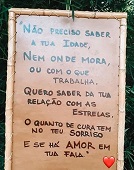 "Não, preciso saber
a tua idade,
nem onde mora,
ou com o que
trabalha.
Quero saber da tua
relação com as
estrelas.
O quanto de cura tem
no teu sorriso
e se há AMOR em
tua fala."